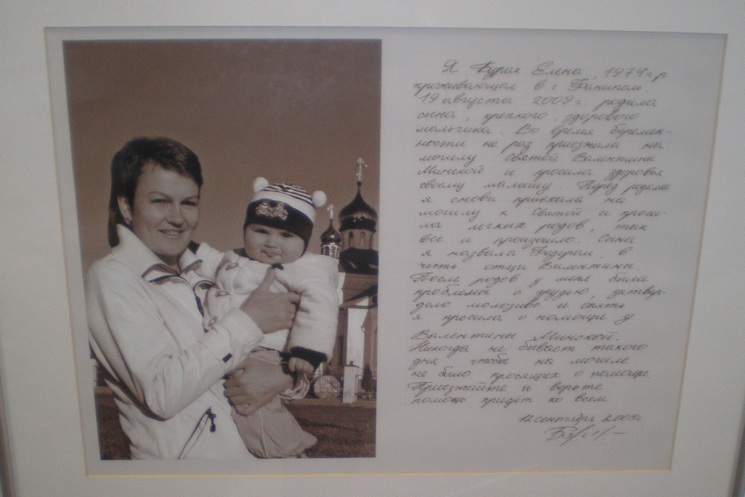 Я Бурак Елена, 1974 г.р.
проживающая в г. Фаниполь.
19 августа 2009 г. родила
сына, крепкого, здорового
мальчика. Во время беремен-
ности не раз приезжала на
могилу Святой Валентины
Минской и просила здоровья
своему малышу. Перед родами
я снова приехала на
могилу к Святой и проси-
ла легких родов, так
все и произошло. Сына
я назвала Фёдором, в
честь отца Валентины.
После родов у меня были
проблемы с грудью,
молозиво и опять
я просила о помощи у
Валентины Минской.
Никогда не бывает такого
дня чтобы на могиле
не было просящих о помощи.
Приезжайте и верьте
помощь придёт ко всем.
12 сентября 2009г.